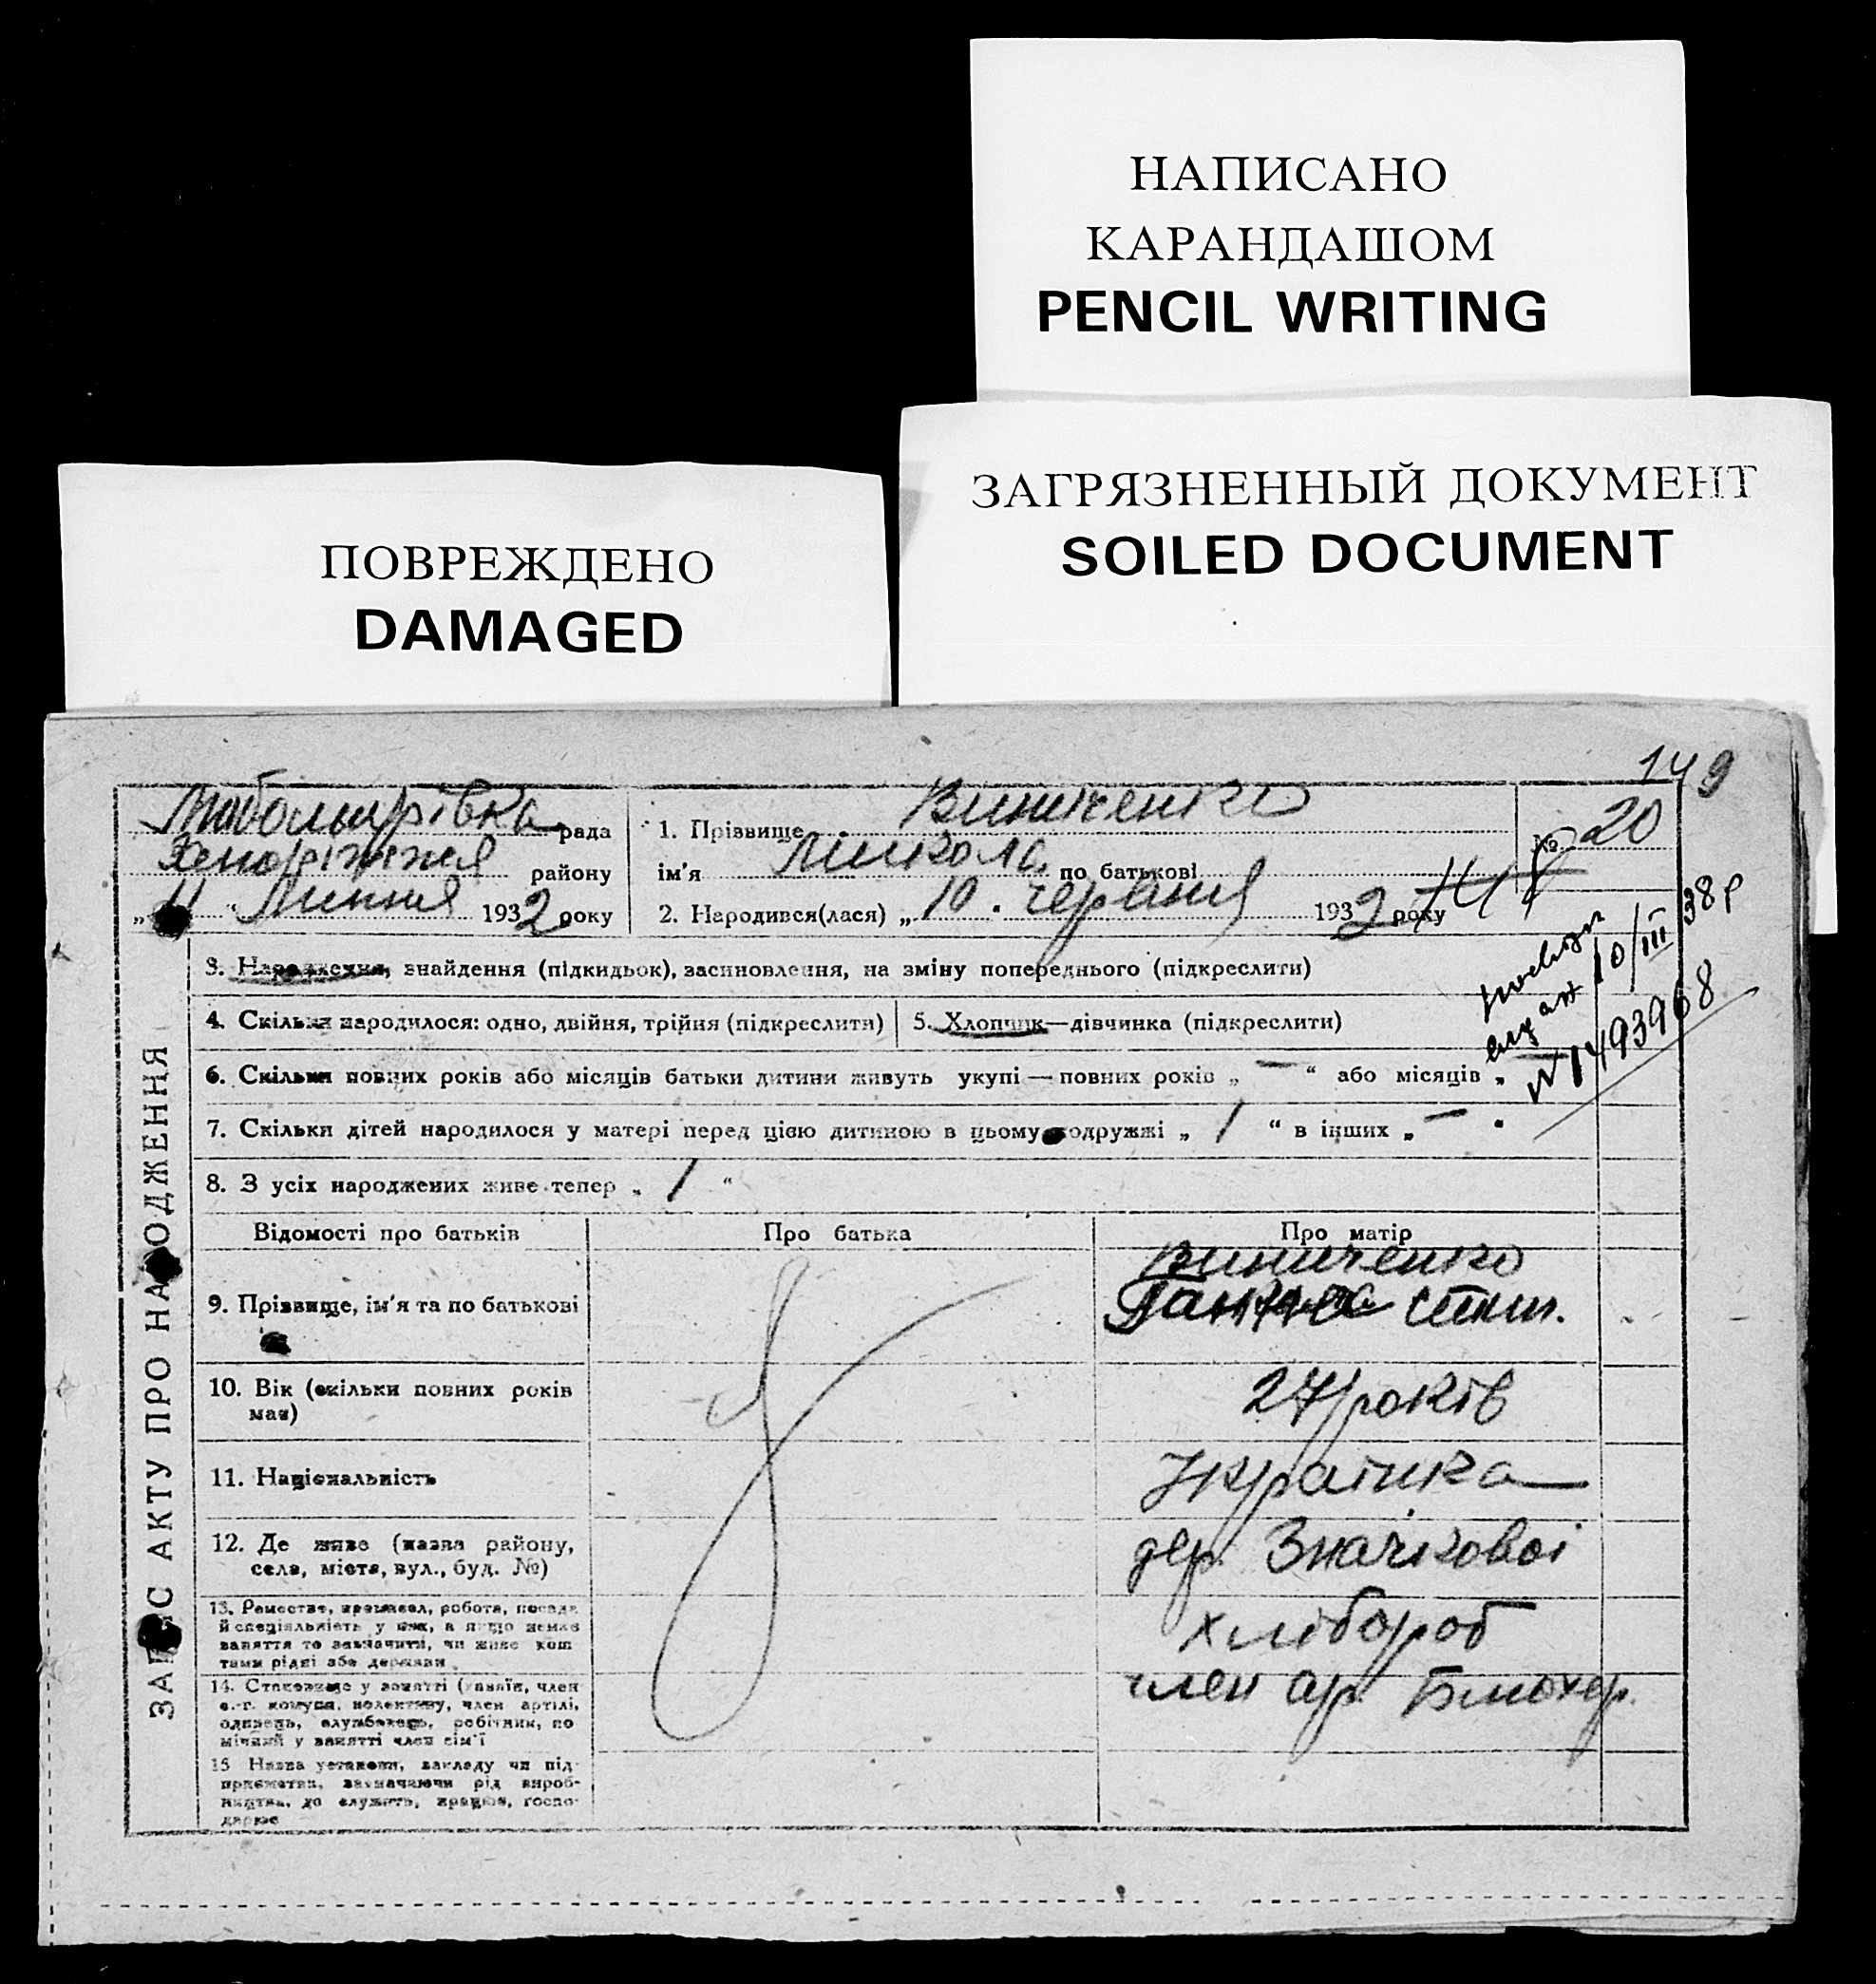 НАПИСАНО
КАРАНДАШОМ
PENCIL WRITING
ЗАГРЯЗНЕННЫЙ ДОКУМЕНТ
SOILED DOCUMENT
ПОВРЕЖДЕНО
DAMAGED
149
рада
району
„11“ Липня 1932 року
1. Прізвище Винниченко
ім'я Микола по батькові
№ 20
2. Народився(лася) „10. червня 1932 року
10/III 38 р
№ 1493968
ЗАПИС АКТУ ПРО НАРОДЖЕННЯ
3. Народження, знайдення (підкидьок), засиновлення, на зміну попереднього (підкреслити)
4. Скільки народилося: одно, двійня, трійня (підкреслити)
5. Хлопчик—дівчинка (підкреслити)
6. Скільки повних років або місяців батьки дитини живуть укупі — повних років „ — “ або місяців „
7. Скільки дітей народилося у матері перед цією дитиною в цьому подружжі „ 1 “ в інших „ — “
8. З усіх народжених живе тепер „ 1 “
Відомості про батьків
Про батька
Про матір
9. Прізвище, ім'я та по батькові
Винниченко
Ганна
10. Вік (скільки повних років
має)
27 років
11. Національність
Українка
12. Де живе (назва району,
села, міста, вул., буд. №)
дер. Значкової
13. Ремество, промисел, робота, посада
й спеціяльність у ній, а якщо немає
заняття то зазначити, чи живе кош
тами рідні або держави
хлібороб
14. Становище у занятті (хазяїн, член
с.-г. комуни, колективу, член артілі,
одинець, службовець, робітник, по
мічний у занятті член сім'ї
член ар.
15 Назва установи, закладу чи під-
приємства, зазначаючи рід вироб-
ництва, де служить, працює, госпо-
дарює